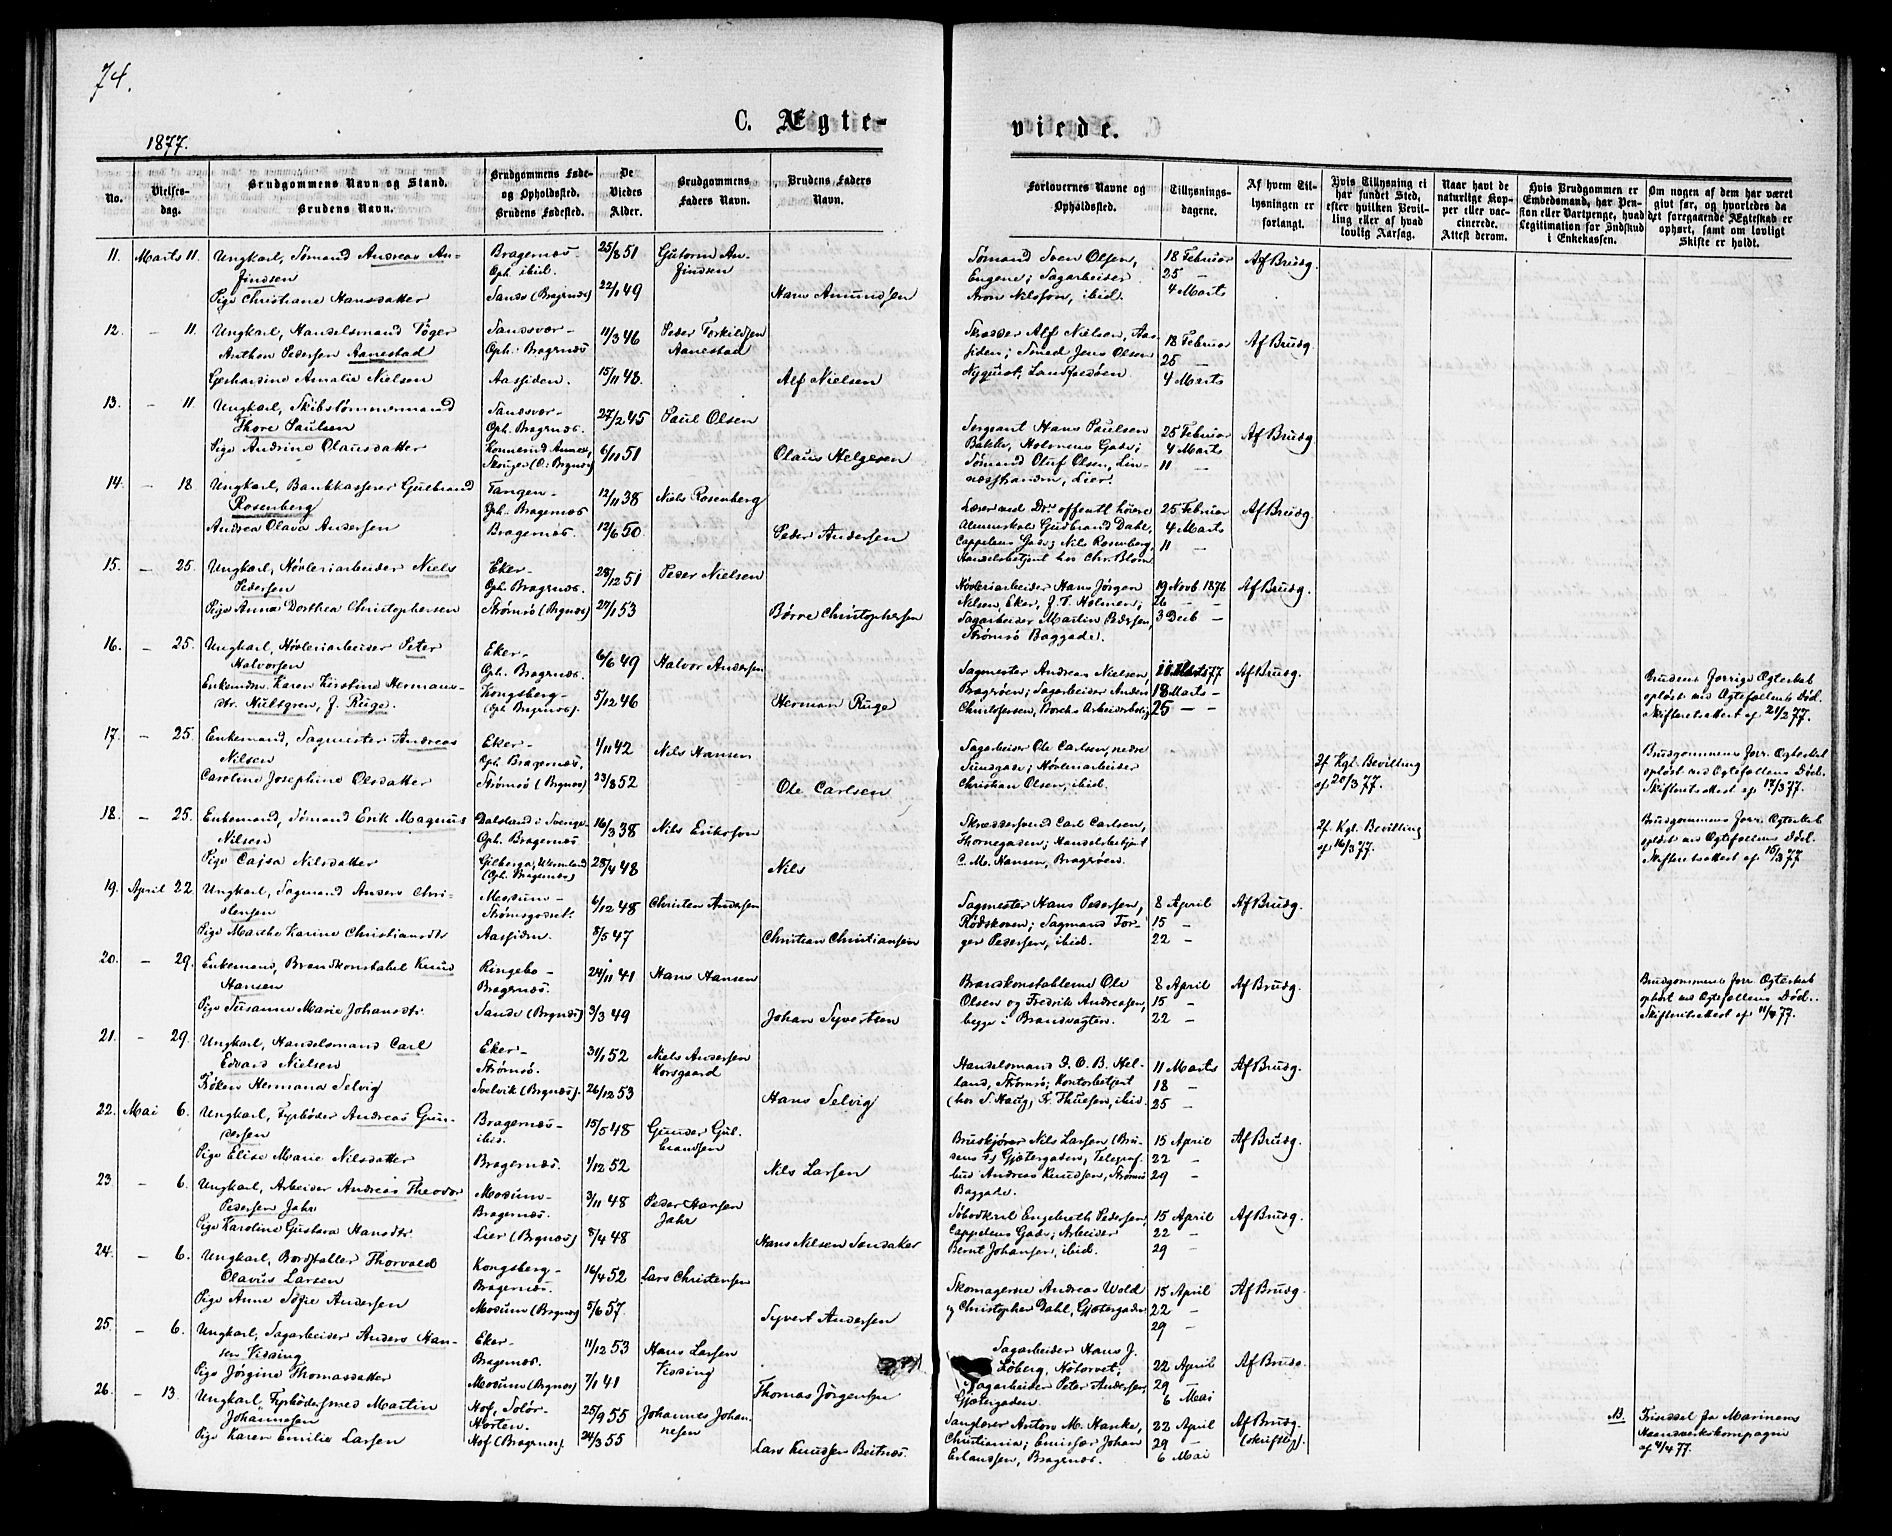 74.
C. Ægte-
viede.
1877.
No.
Vielses-
dag.
Brudgommens Navn og Stand.
Brudens Navn.
Brudgommens Føde-
og Opholdssted.
Brudens Fødested.
De
Viedes
Alder.
Brudgommens
Faders Navn.
Brudens Faders
Navn.
Forlovernes Navne og
Opholdssted.
Tillysnings-
dagene.
Af hvem Til-
lysningen er
forlangt.
Hvis Tillysning ei
har fundet Sted,
efter hvilken Bevil-
ling eller af hvad
lovlig Aarsag.
Naar havt de
naturlige Kop-
per eller vac-
cinerede.
Attest derom.
Hvis Brudgommen er
Embedsmand, har Pen-
sion eller Vartpenge, hvad
Legitimation for Indskud
i Enkekassen.
Om nogen af dem har været
givt før, og hvorledes da
det foregaaende Ægteskab er
ophørt, samt om lovligt
Skifte er holdt.
11. Marts 11. Ungkarl, Sømand Andreas An- Bragernæs- 25/8 51 Gutorm An- Sømand Sven Olsen, 18 Februar Af Brudg.
findsen Oph. ibid. findsen Engene; Sagarbeider 25 —
Pige Christiane Hansdatter Sande (Bragnæs) 22/1 49 Hans Amundsen Aron Nilsson, ibid. 4 Marts
12. — 11. Ungkarl, Handelsmand Tøger Sandsvær- 11/3 46 Peder Torkildsen Skræder Alf Nielsen, Aas- 18 Februar Af Brudg.
Anthon Pedersen Aanestad Oph. Bragernæs Aanestad siden; Smed Jens Olsen 25 —
Gerhardine Amalie Nielsen Aassiden. 15/11 48. Alf Nielsen Nyquist, Landfaldøen. 4 Marts
13. — 11. Ungkarl, Skibstømmermand Sandsvær- 27/2 45 Paul Olsen Sergeant Hans Paulsen 25 Februar Af Brudg.
Thore Paulsen Oph. Bragernæs. Bakke, Holmens Gade; 4 Marts
Pige Andrine Olausdatter Konnerud Annex, 6/11 51 Olaus Helgesen Sømand Oluf Olsen, Lin- 11 —
Skouger (O: Brgnæs) næsstranden, Lier.
14. — 18. Ungkarl, Bankkasserer Gulbrand Tangen- 12/11 38 Niels Rosenberg Lærer ved Drs offentl høiere 25 Februar Af Brudg.
Rosenberg Oph. Bragernæs Almueskole Gudbrand Dahl, 4 Marts
Andrea Olava Andersen Bragernæs. 12/6 50. Peder Andersen Cappelens Gade; Nils Rosenberg, 11 —
Handelsbetjent hos Chr. Blom
15. — 25. Ungkarl, Høvleriarbeider Niels Eker- 28/12 51 Peder Nielsen Høvleriarbeider Hans Jørgen 19 Novb 1876 Af Brudg.
Pedersen Oph. Bragernæs. Nilsen, Eker, f. T. Holmen; 26 — —
Pige Anna Dorthea Christophersen Strømsø (Brgnæs) 27/1 53 Børre Christophersen Sagarbeider Martin Pedersen, 3 Decb —
Strømsø Baggade.
16. — 25. Ungkarl, Høvleriarbeider Peter Eker- 6/6 49 Halvor Andersen Sagmester Andreas Nielsen, 11 Marts 77 Af Brudg. Brudens forrige Ægteskab
Halvorsen Oph. Bragernæs. Bragerøen; Sagarbeider Anders 18 Marts — opløst ved Ægtefællens Død.
Enkemdm. Karen Kirstine Hermans- Kongsberg- 5/12 46 Herman Ruge Christofersen, Borchs Arbeiderbolig 25 — — Skifteretsattest af 21/2 77.
dtr. Hultgren, f. Ruge. (Oph. Bragernæs).
17. — 25. Enkemand, Sagmester Andreas Eker- 1/11 42 Nils Hansen Sagarbeider Ole Carlsen, nedre If. Kgl. Bevilling Brudgommens forr. Ægteskab
Nilsen Oph. Bragernæs. Sundgade; Høvleriarbeider af 20/3 77. opløst ved Ægtefællens Død.
Caroline Josephine Olsdatter Strømsø (Brgnæs) 23/8 52 Ole Carlsen Christian Olsen, ibid. Skifteretsattest af 17/3 77.
18. — 25. Enkemand, Sømand Erik Magnus Dalsland i Sverige- 16/3 38 Nils Erikson Skræddersvend Carl Carlsen, If. Kgl. Bevilling Brudgommens forr. Ægteskab
Nilsen Oph. Bragernæs Thornegaden; Handelsbetjent af 16/3 77. opløst ved Ægtefællens Død.
Pige Cajsa Nilsdatter Gilberga, Wermland 28/4 48 Nils C. M. Hansen, Bragerøen. Skifteretsattest af 15/3 77
(Oph. Bragernæs)
19. April 22. Ungkarl, Sagmand Anders Chri- Modum- 6/12 48 Christen Andersen Sagmester Hans Pedersen, 8 April Af Brudg.
stensen Strømsgodset. Rødskoven; Sagmand Tor- 15 —
Pige Marthe Karine Christiansdtr Aassiden. 8/5 47 Christian Christiansen ger Pedersen, ibid. 22 —
20. — 29. Enkemand, Brandkonstabel Knud Ringebo- 24/11 41 Hans Hansen Brandkonstablerne Ole 8 April Af Brudg. Brudgommens forr. Ægteskab
Hansen Bragernæs. Olsen og Fredrik Andreasen, 15 — opløst ved Ægtefællens Død.
Pige Susanne Marie Johansdtr. Sande (Brgnæs) 3/3 49 Johan Syvertsen begge i Brandvagten. 22 — Skifteretsattest af 11/4 77.
21. — 29. Ungkarl, Handelsmand Carl Eker- 31/1 52 Niels Andersen Handelsmand J. O. B. Hel- 11 Marts Af Brudg.
Edvard Nielsen Strømsø. Korsgaard land, Strømsø; Kontorbetjent 18 —
Frøken Hermana Selvig Svelvik (Brgnæs). 26/12 53 Hans Selvig (hos S. Haug, Fr. Thuesen, ibid. 25 —
22. Mai 6. Ungkarl, Fyrbøder Andreas Gun- Bragernæs- 15/5 48 Gunder Gul- Bruskjører Nils Larsen (Bru- 15 April Af Brudg.
dersen ibid. brandsen dens F.) Gjætergaden; Telegraf- 22 —
Pige Elise Marie Nilsdatter Bragernæs. 1/12 52 Nils Larsen bud Andreas Knudsen, Strømsø 29 —
Baggade.
23. — 6. Ungkarl, Arbeider Andreas Theodor Modum- 3/11 48 Peder Hansen Søbodkarl Engebreth Pedersen 15 April Af Brudg.
Pedersen Jahr Bragernæs. Jahr Cappelens Gade; Arbeider 22 —
Pige Karoline Gustava Hansdtr. Lier (Brgnæs) 8/4 48 Hans Nilsen Sandaker Bernt Johansen, ibid. 29 —
24. — 6. Ungkarl, Bordfalter Thorvald Kongsberg- 16/4 52 Lars Christensen Skomagerne Andreas Wold 15 April Af Brudg.
Olavus Larsen Bragernæs. og Christopher Dahl, Gjætergaden 22 —
Pige Anne Sofie Andersen Modum (Brgnæs) 5/6 57 Syvert Andersen 29 —
25. — 6. Ungkarl, Sagarbeider Anders Han- Eker- 11/12 53 Hans Larsen Sagarbeider Hans J. 22 April Af Brudg.
sen Vissing Bragernæs. Vissing Løberg, Høtorvet; 29 —
Pige Jørgine Thomasdatter Modum (Brgnæs) 7/1 41 Thomas Jørgensen Sagarbeider Peter Andersen, 6 Mai
Gjætergaden.
26. — 13. Ungkarl, Fyrbødersmed Martin Hof, Solør- 25/9 55 Johannes Johan- Sanglærer Anton M. Hanke, 22 April Af Brudg. NB. Fridssel fra Marinens
Johannesen Horten. nesen Christiania; Emisær Johan 29 — (skriftlig). Haandverkskompagni
Pige Karen Emilie Larsen Hof (Bragernæs). 24/3 55 Lars Knudsen Beitnæs. Erlandsen, Bragernæs. 6 Mai af 4/4 77.